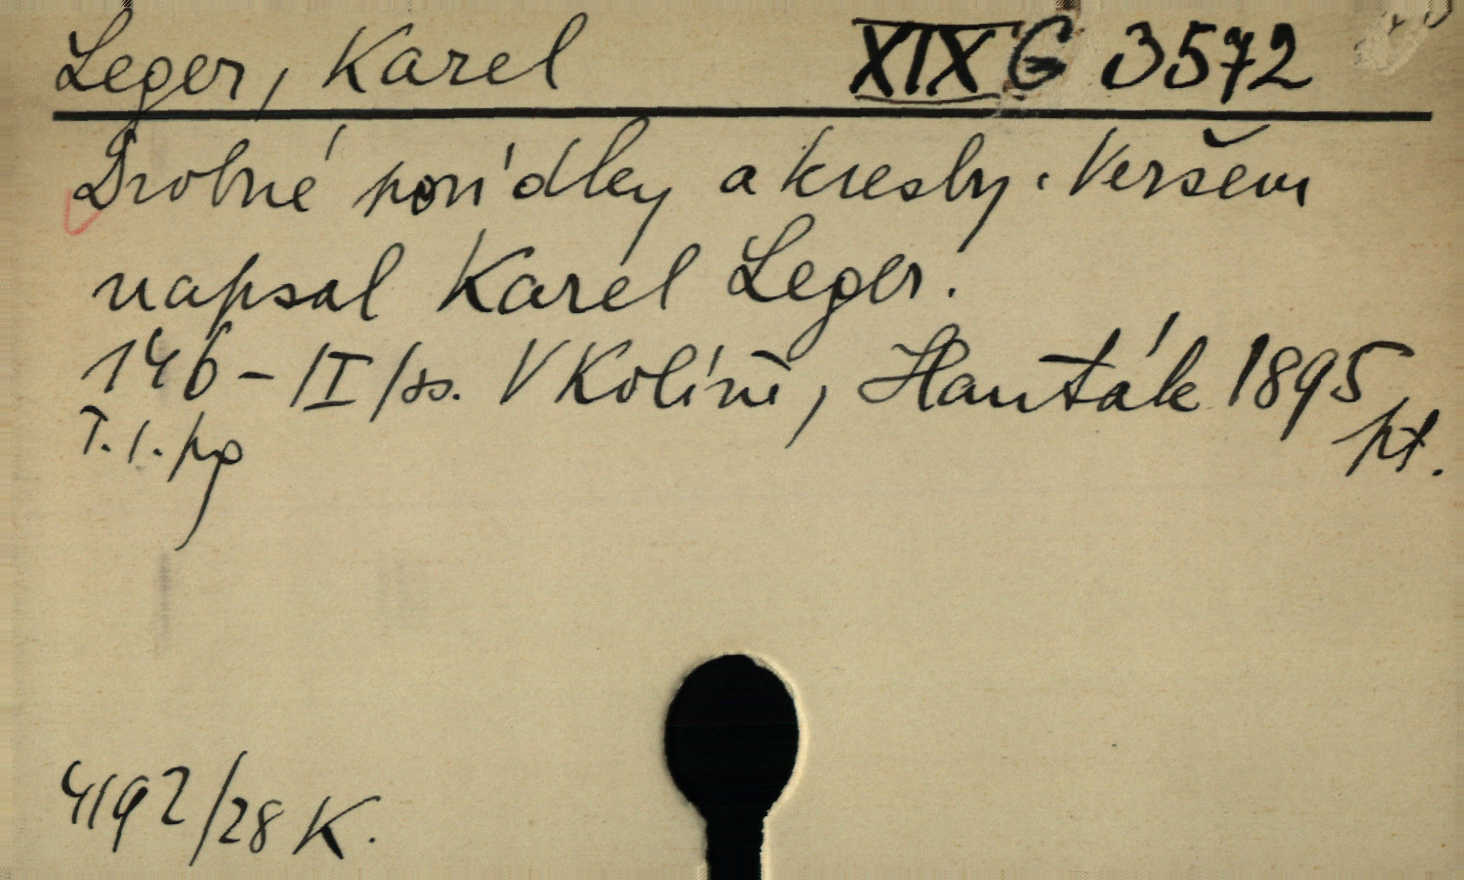 Leger, Karel XIX G 3572
Drobné povídky a kresby. Veršem
napsal Karel Leger.
146-/I/ss. V Kolíně, Hanťák 1895
T.1.pg pt.
4192/28 K.